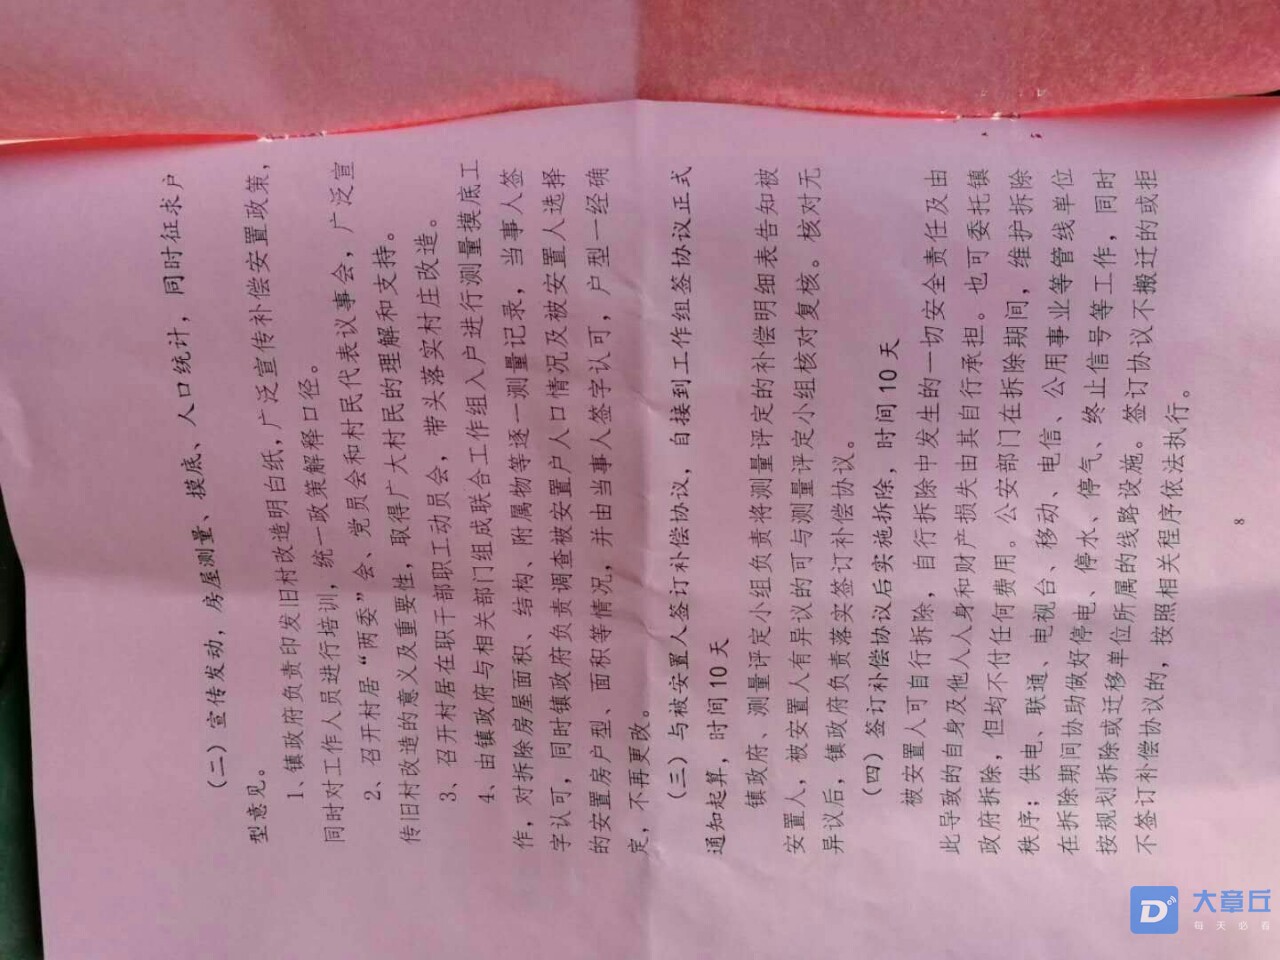 （二）宣传发动，房屋测量、摸底、人口统计，同时征求户
型意见。
1、镇政府负责印发旧村改造明白纸，广泛宣传补偿安置政策，
同时对工作人员进行培训，统一政策解释口径。
2、召开村居“两委”会、党员会和村民代表议事会，广泛宣
传旧村改造的意义及重要性，取得广大村民的理解和支持。
3、召开村居在职干部职工动员会，带头落实村庄改造。
4、由镇政府与相关部门组成联合工作组入户进行测量摸底工
作，对拆除房屋面积、结构、附属物等逐一测量记录，当事人签
字认可，同时镇政府负责调查被安置户人口情况及被安置人选择
的安置房户型、面积等情况，并由当事人签字认可，户型一经确
定，不再更改。
（三）与被安置人签订补偿协议，自接到工作组签协议正式
通知起算，时间 10 天
镇政府、测量评定小组负责将测量评定的补偿明细表告知被
安置人，被安置人有异议的可与测量评定小组核对复核。核对无
异议后，镇政府负责落实签订补偿协议。
（四）签订补偿协议后实施拆除，时间 10 天
被安置人可自行拆除，自行拆除中发生的一切安全责任及由
此导致的自身及他人人身和财产损失由其自行承担。也可委托镇
政府拆除，但均不付任何费用。公安部门在拆除期间，维护拆除
秩序；供电、联通、电视台、移动、电信、公用事业等管线单位
在拆除期间协助做好停电、停水、停气、终止信号等工作，同时
按规划拆除或迁移单位所属的线路设施。签订协议不搬迁的或拒
不签订补偿协议的，按照相关程序依法执行。
8
大章丘
每天必看